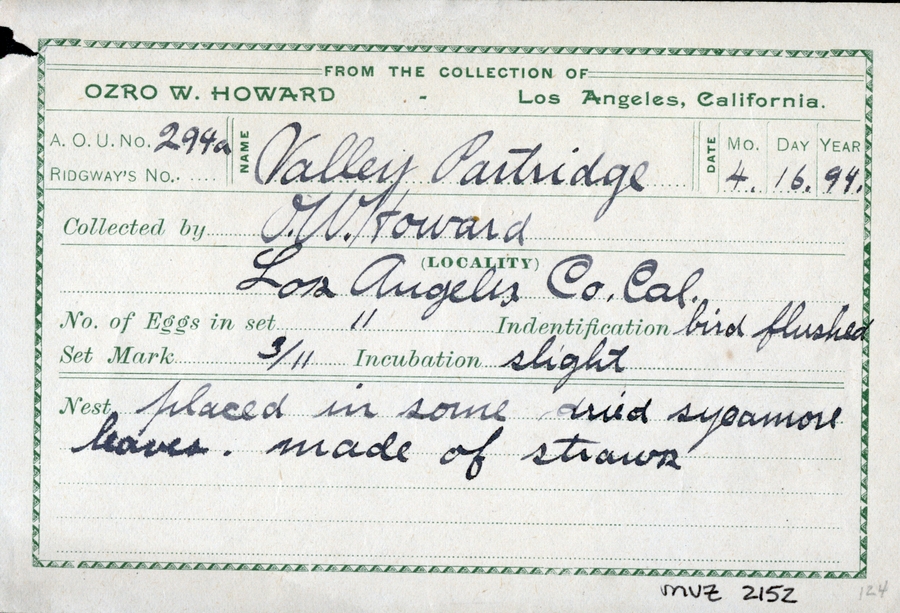 FROM THE COLLECTION OF
OZRO W. HOWARD - Los Angeles, California.
A. O. U. No. 294a NAME Valley Partridge DATE Mo. DAY YEAR
RIDGWAY'S No. 4. 16. 94.
Collected by O. W. Howard
(LOCALITY)
Los Angeles Co. Cal.
No. of Eggs in set 11 Indentification bird flushed
Set Mark 3/11 Incubation slight
Nest placed in some dried sycamore
leaves. made of straws
MVZ 2152 124